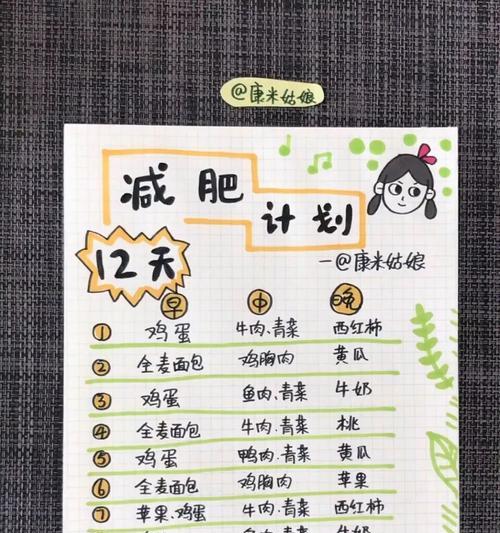 @康米姑娘
减肥
计划
12天
一@康米姑娘
早 中 晚
① 鸡蛋 牛肉、青菜 西红柿
② 全麦面包 鸡胸肉 黄瓜
③ 鸡蛋 鱼肉、青菜 牛奶
④ 全麦面包 牛肉、青菜 桃
⑤ 鸡蛋 鸭肉、青菜 黄瓜
⑥ 全麦面包 鸡胸肉 苹果
⑦ 苹果、鸡蛋 牛肉、青菜 西红柿